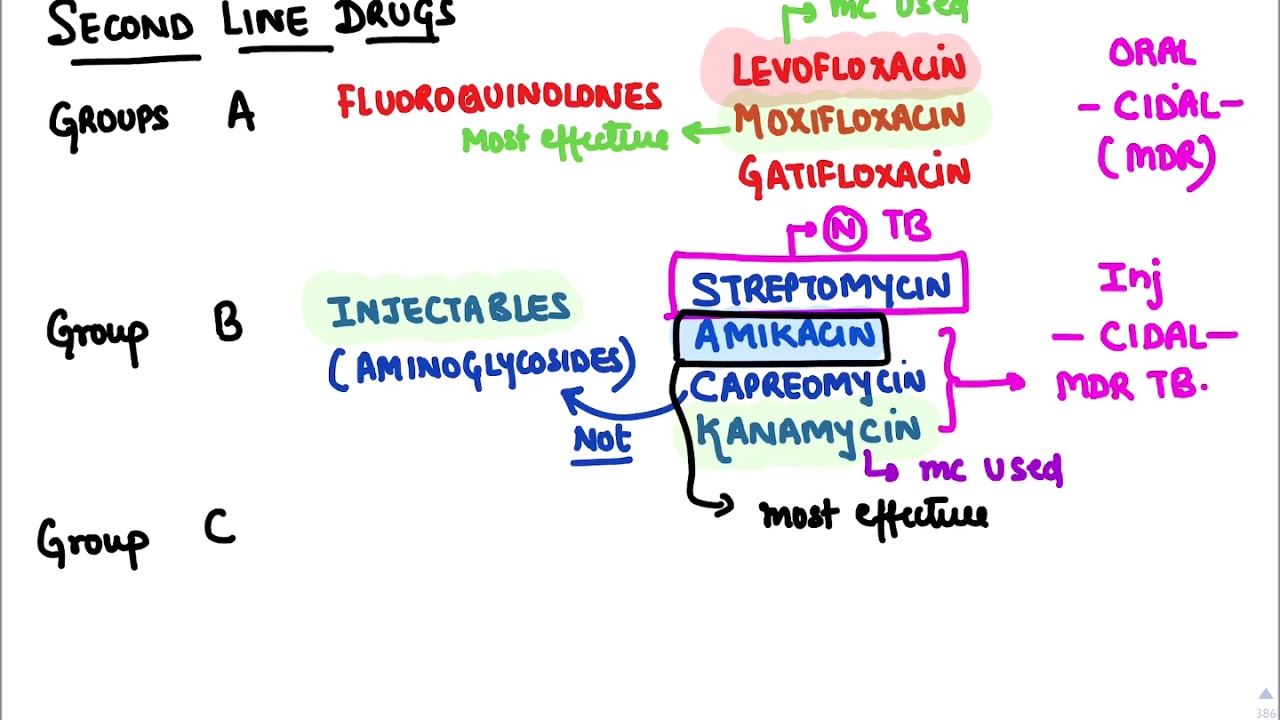 mc used
SECOND LINE DRUGS
LEVOFLOXACIN
ORAL
GROUPS A
FLUOROQUINOLONES
MOXIFLOXACIN
- CIDAL -
Most effective
(MDR)
GATIFLOXACIN
N TB
STREPTOMYCIN
Inj
Group B
INJECTABLES
AMIKACIN
- CIDAL -
(AMINOGLYCOSIDES)
CAPREOMYCIN
MDR TB.
Not
KANAMYCIN
mc used
most effective
Group C
386